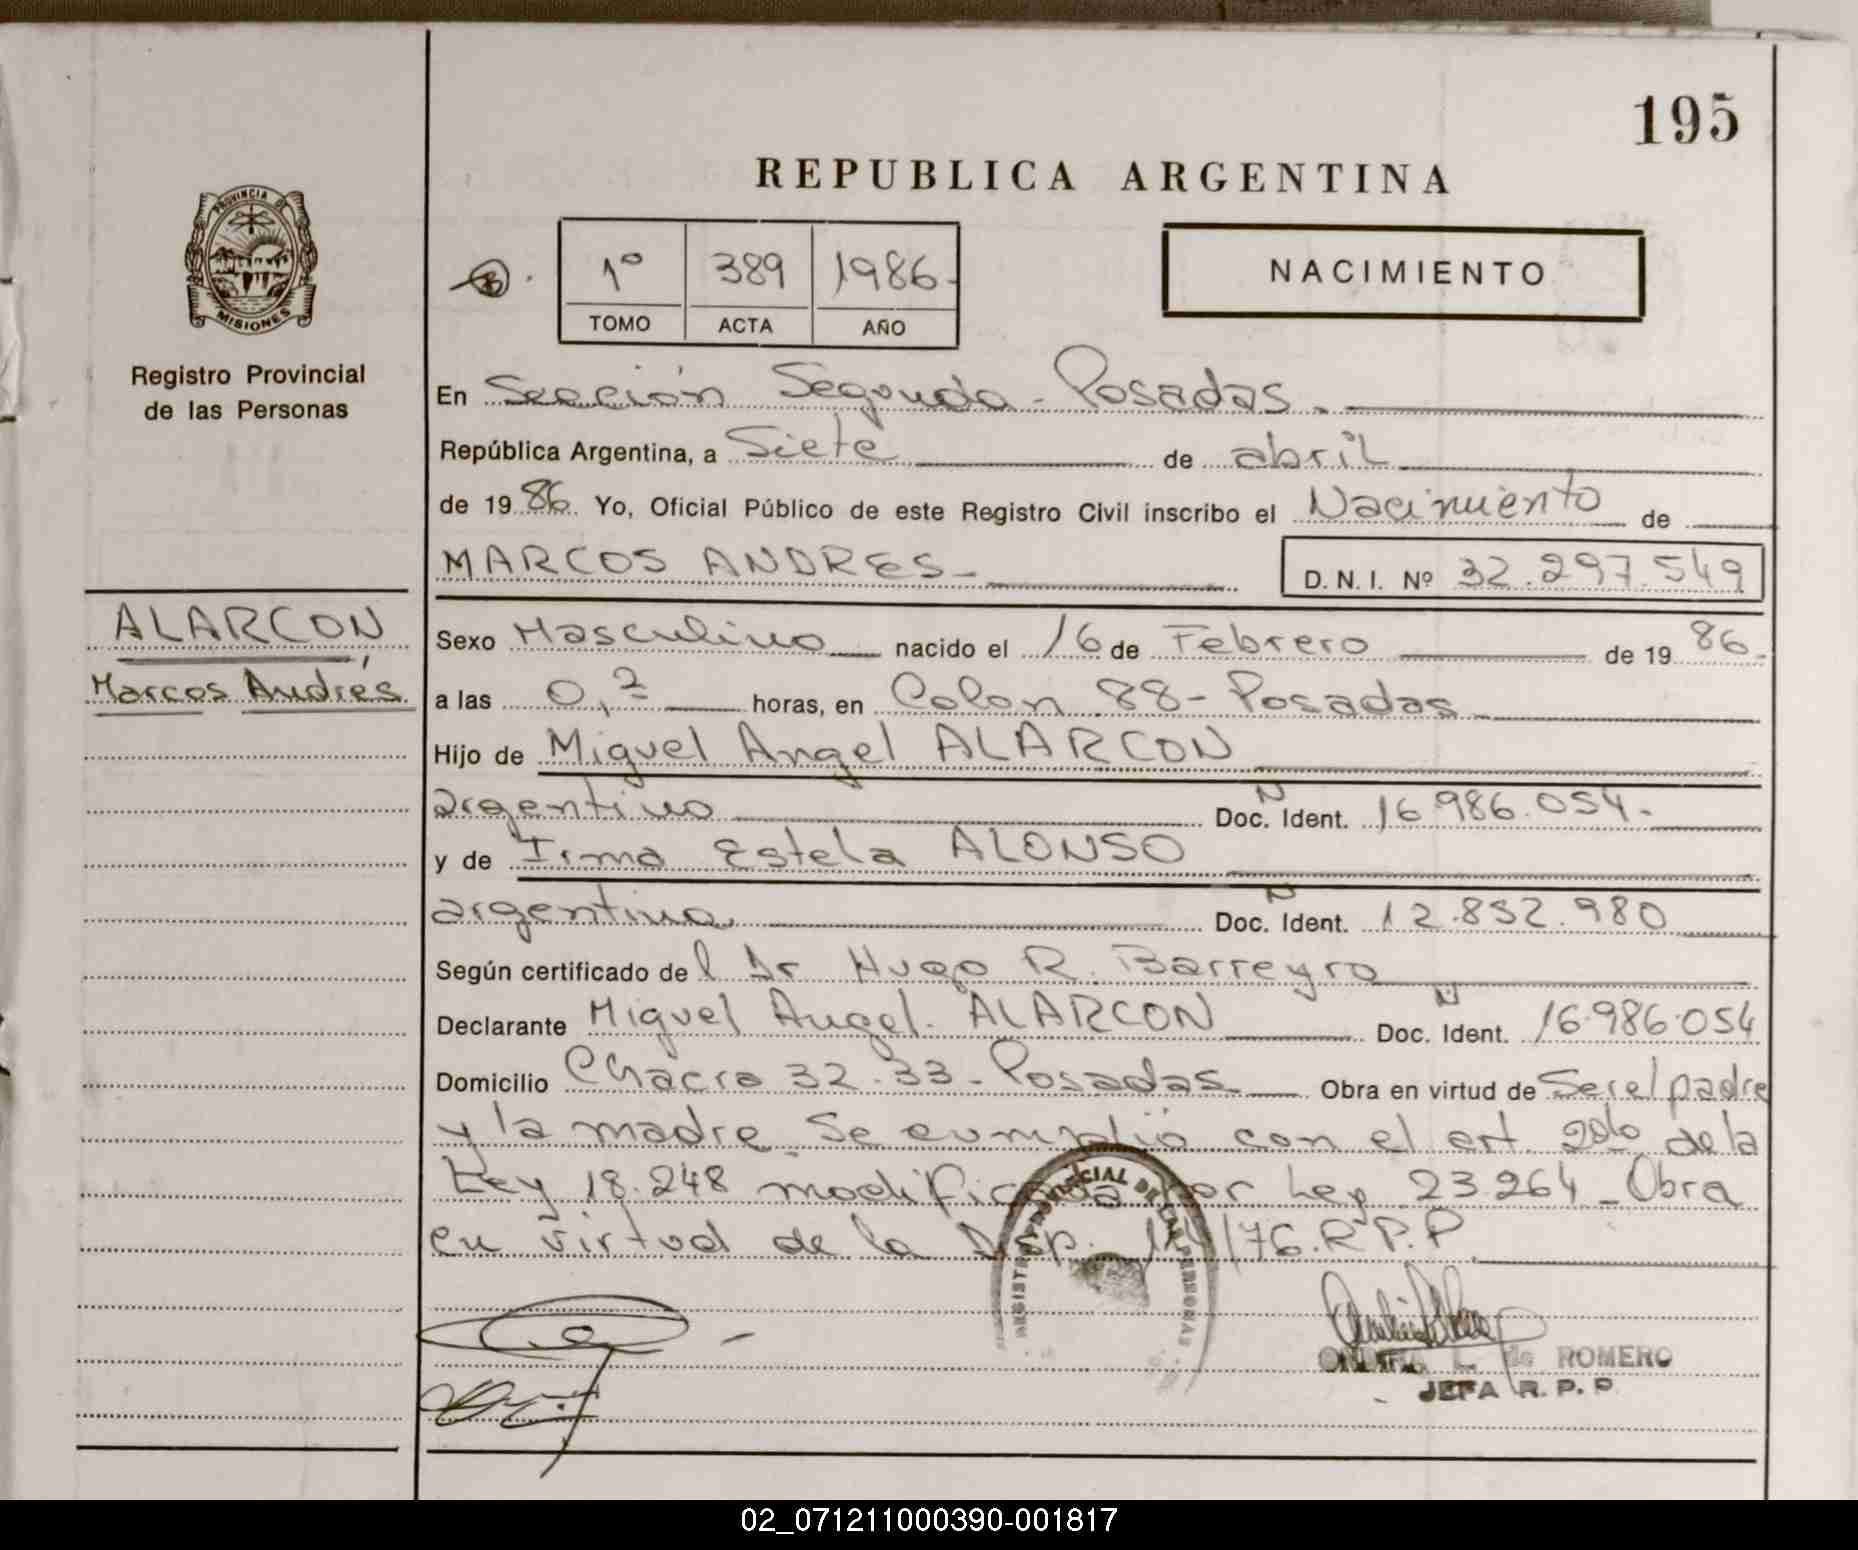 195
REPUBLICA ARGENTINA
PROVINCIA DE
MISIONES
Registro Provincial
de las Personas
1º 389 1986
TOMO ACTA AÑO
NACIMIENTO
En Sección Segunda - Posadas.
República Argentina, a Siete de abril
de 1986. Yo, Oficial Público de este Registro Civil inscribo el Nacimiento de
MARCOS ANDRES D.N.I. Nº 32.297.549
ALARCON
Marcos Andrés
Sexo Masculino nacido el 16 de Febrero de 1986
a las horas, en Colon 88 - Posadas
Hijo de Miguel Angel ALARCON
argentino Doc. N Ident. 16.986.054.
y de Irma Estela ALONSO
argentina Doc. N Ident. 12.852.980
Según certificado del Dr Hugo R. Barreyro
Declarante Miguel Angel ALARCON Doc. N Ident. 16.986.054
Domicilio Chacra 32-33 - Posadas Obra en virtud de Ser el padre
y la madre. Se cumplió con el art. de la
Ley 18.248 modificada por Ley 23.264 - Obra
en virtud de la Disp. /76.R.P.P.
REGISTRO PROVINCIAL DE LAS PERSONAS
L. de ROMERO
JEFA R.P.P
02_071211000390-001817